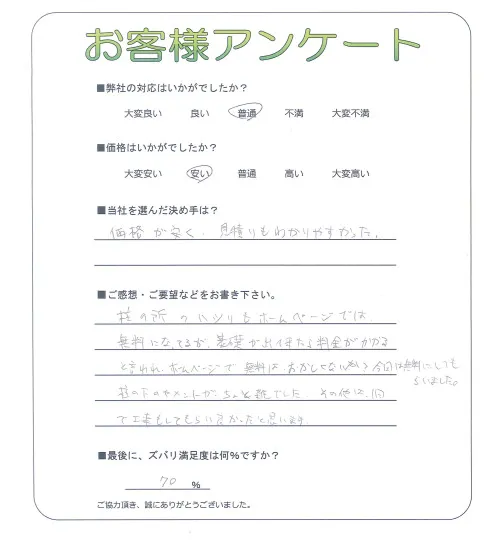 お客様アンケート
■弊社の対応はいかがでしたか？
大変良い 良い 普通 不満 大変不満
■価格はいかがでしたか？
大変安い 安い 普通 高い 大変高い
■当社を選んだ決め手は？
価格が安く、見積りもわかりやすかった。
■ご感想・ご要望などをお書き下さい。
柱の所のハツリもホームページでは
無料になってるが、基礎が出てきたら料金がかかる
と言われ、ホームページで無料は、おかしくない 今回は無料にしても
らいました。
のセメントが、ちょっと雑でした。その他は、
で工事もしてもらい良かったと思います
■最後に、ズバリ満足度は何％ですか？
70 ％
ご協力頂き、誠にありがとうございました。